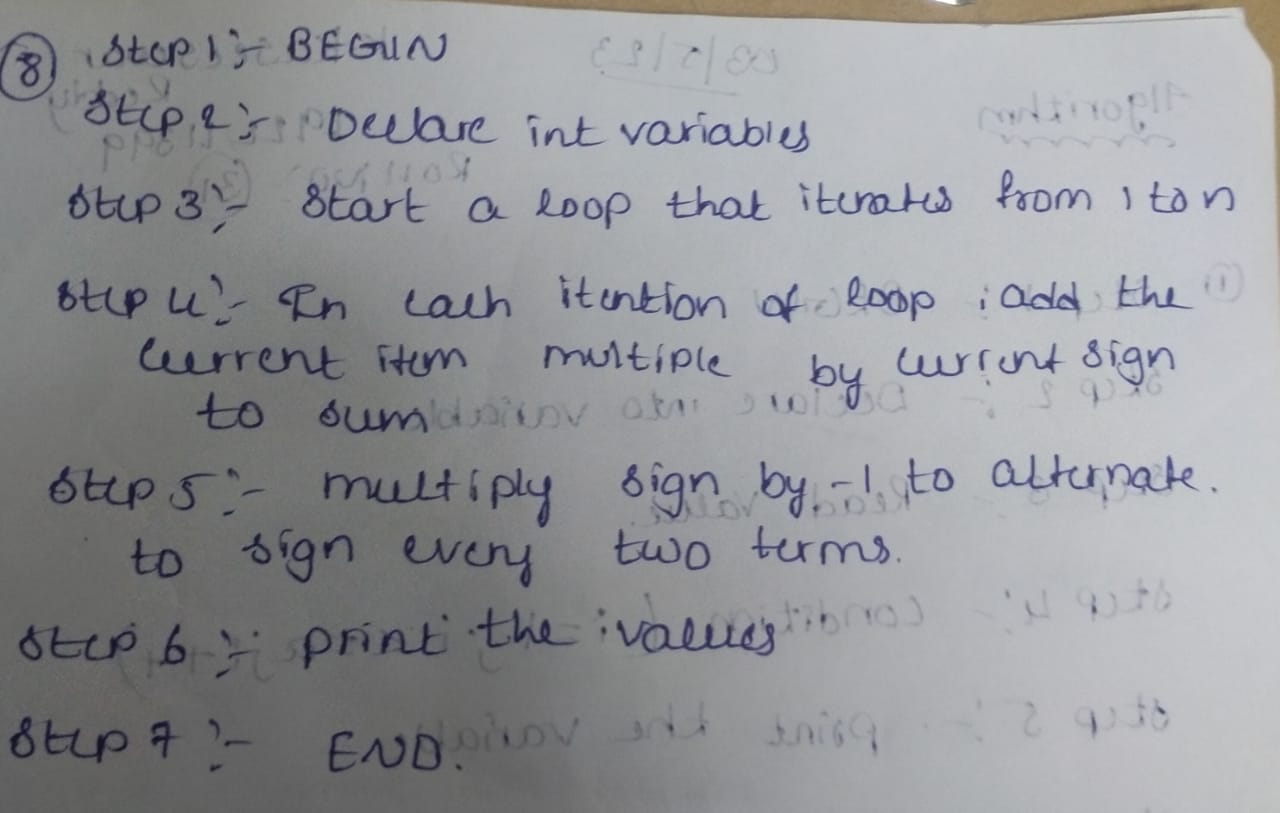 8 Step 1 :- BEGUN
Step 2 :- Declare int variables
Step 3 :- Start a loop that iterates from 1 to n
Step 4 :- In each itention of loop ; add the
Current item multiple by current sign
to sum
Step 5 :- multiply sign by -1 to alternate.
to sign every two terms.
Step 6 :- print the values
Step 7 :- END.